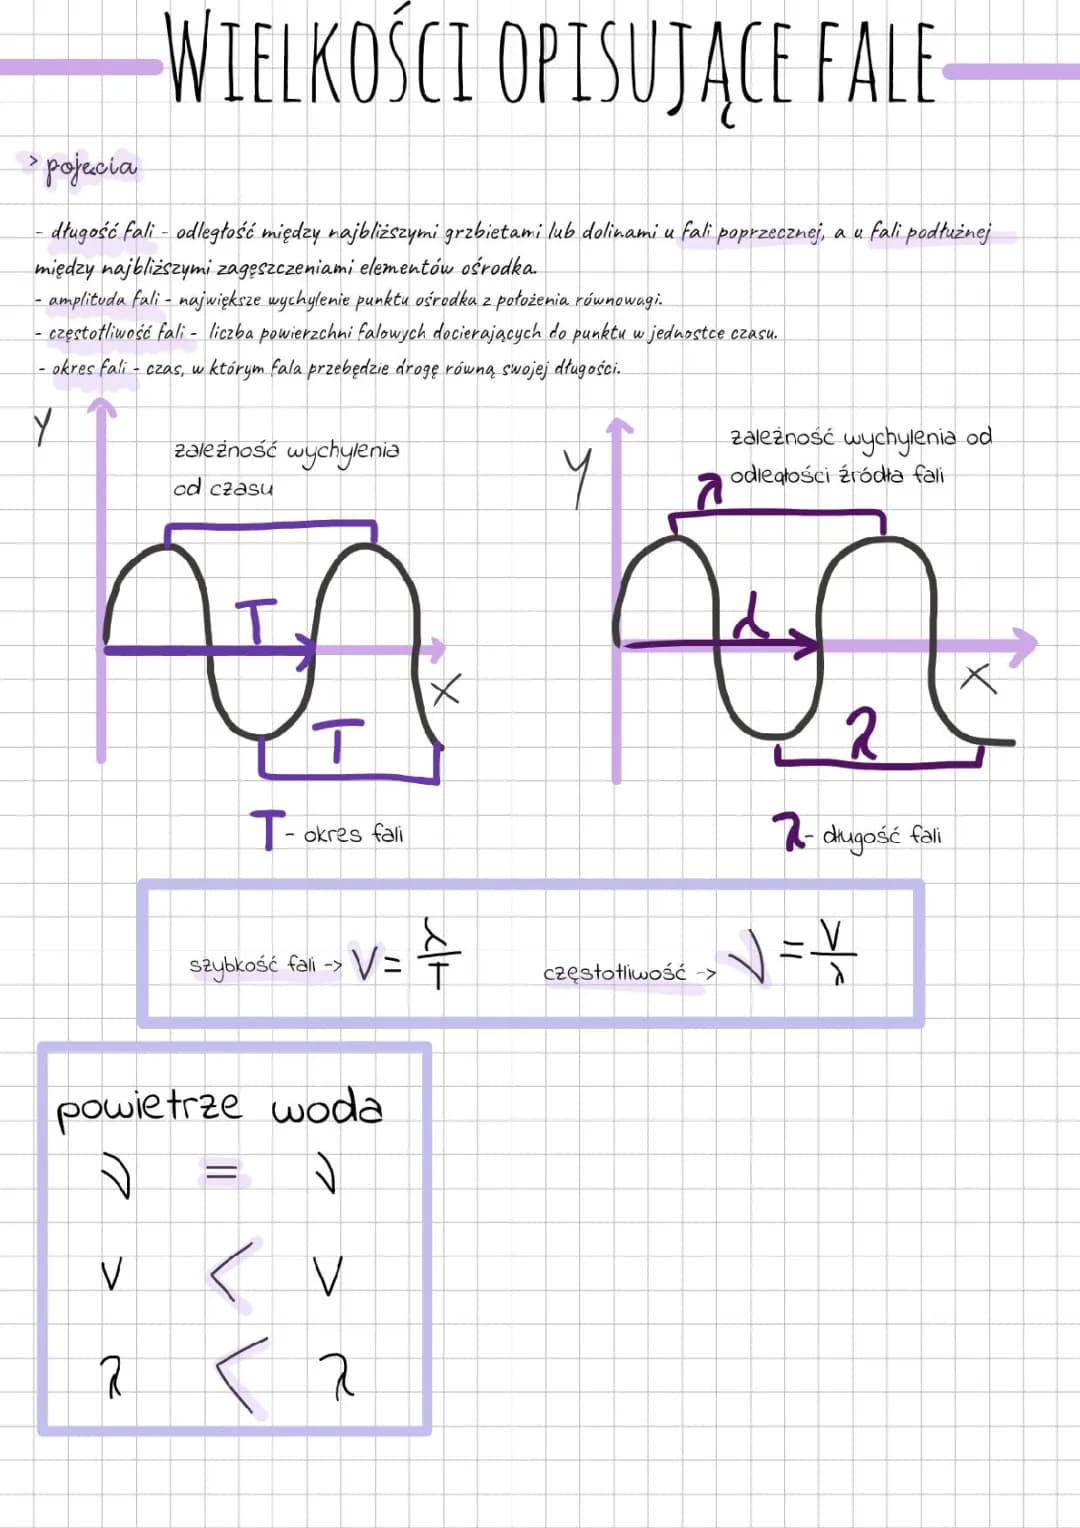 WIELKOŚCI OPISUJĄCE FALE
> pojęcia
- długość fali - odległość między najbliższymi grzbietami lub dolinami u fali poprzecznej, a u fali podłużnej
między najbliższymi zagęszczeniami elementów ośrodka.
- amplituda fali - największe wychylenie punktu ośrodka z położenia równowagi.
- częstotliwość fali - liczba powierzchni falowych docierających do punktu w jednostce czasu.
- okres fali - czas, w którym fala przebędzie drogę równą swojej długości.
y
zależność wychylenia
od czasu
T
x
T
T - okres fali
y
zależność wychylenia od
odległości źródła fali
λ
x
λ
λ - długość fali
szybkość fali -> V = λ/T
częstotliwość -> ν = V/λ
powietrze woda
ν = ν
V < V
λ < λ